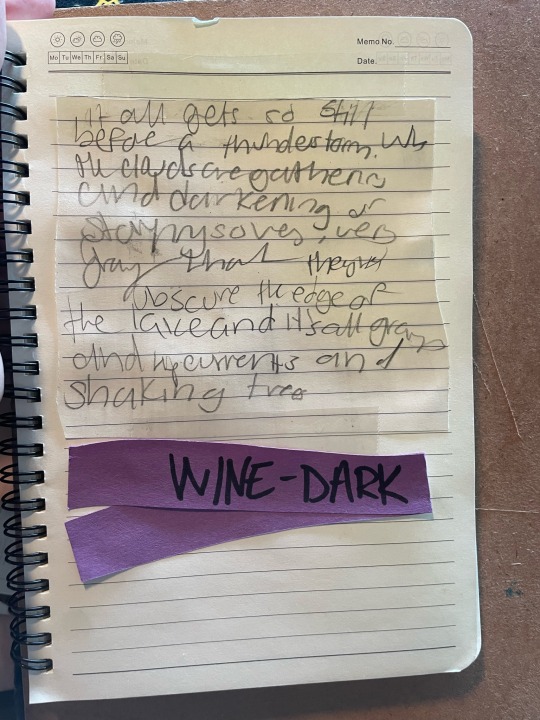 Memo No.
Mo Tu We Th Fr Sa Su
Date.
it all gets so still
before a thunderstorm. Wh
the clouds are gathering
and darkening or
so very
gray that they
obscure the edge of
the lake and it's all gray
and currents and
shaking trees
WINE-DARK